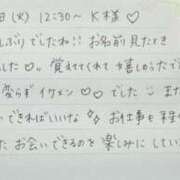 日(火) 12:30~ K様♡
しぶりでしたね!! お名前見たとき
した♡ 覚えててくれて嬉しかったで
変らずイケメン♡でした♡ また
できればいいな♢♢ お仕事も
たお会いできるのを楽しみにしてい